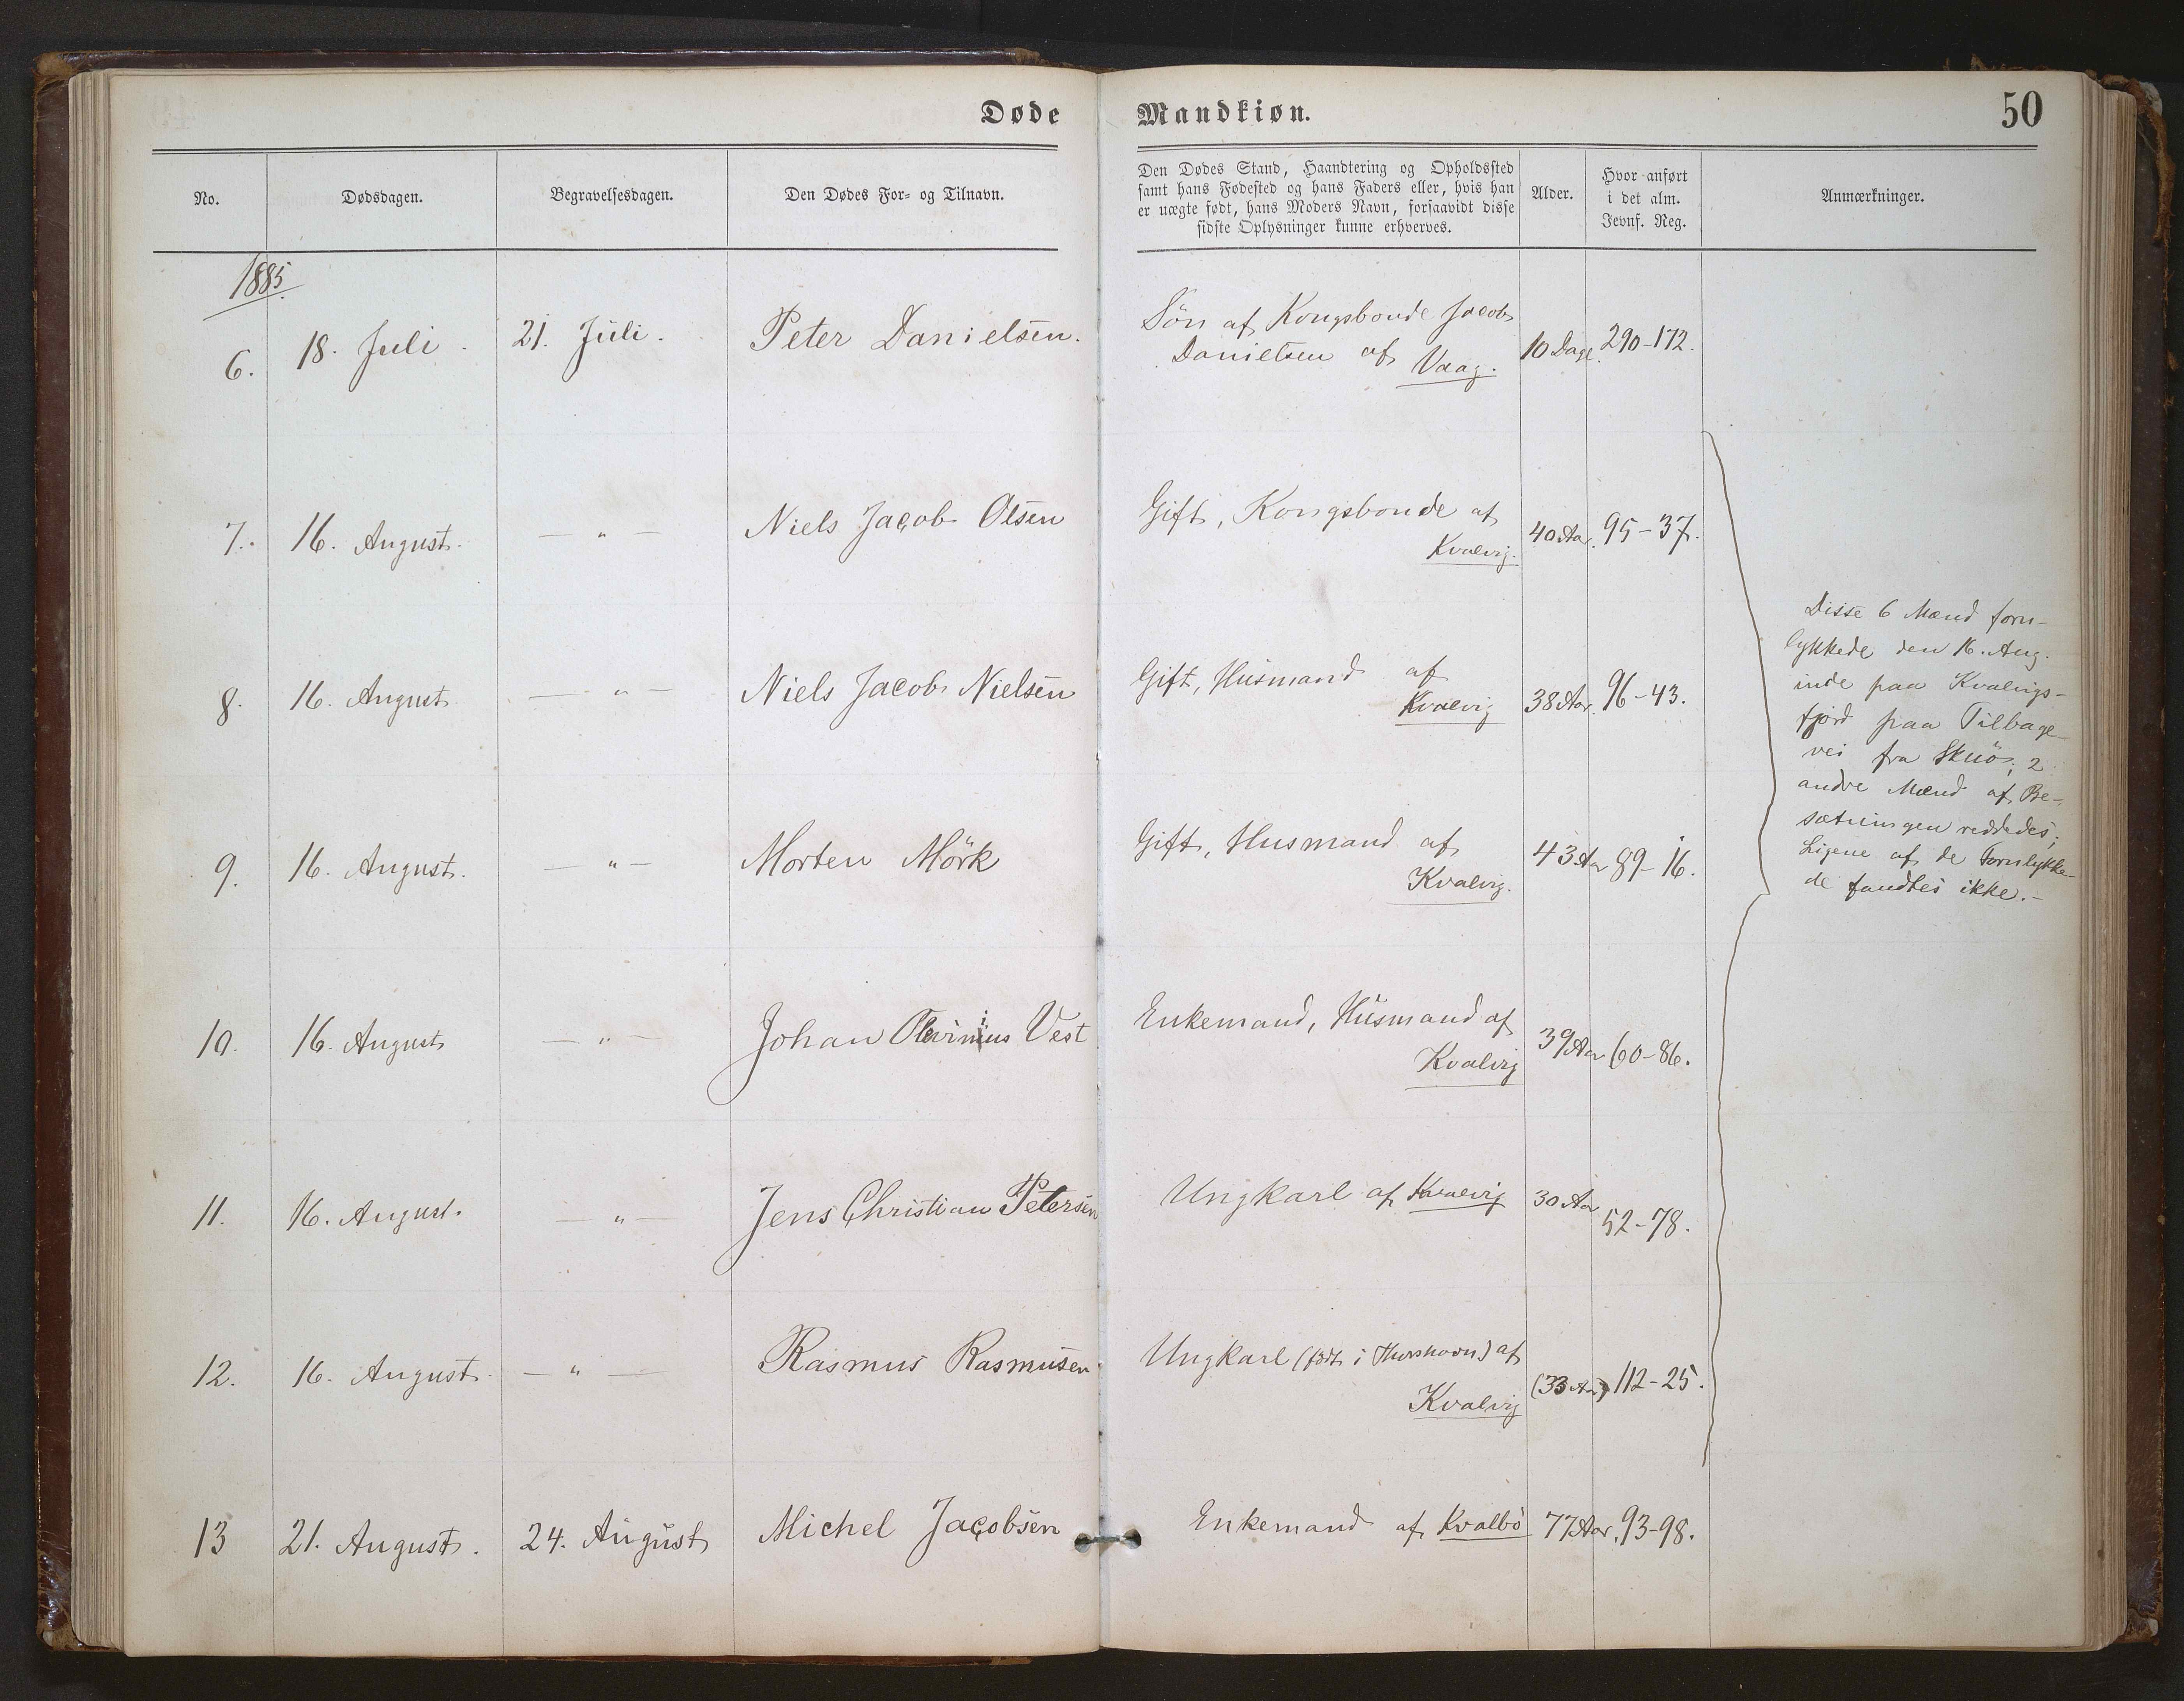 Døde
Mandkiøn.
50
No.
Dødsdagen.
Begravelsesdagen.
Den Dødes For- og Tilnavn.
Den Dødes Stand, Haandtering og Opholdssted
samt hans Fødested og hans Faders eller, hvis han
er uægte født, hans Moders Navn, forsaavidt disse
sidste Oplysninger kunne erhverves.
Alder.
Hvor anført
i det alm.
Jevnf. Reg.
Anmærkninger.
1885
6.
18. Juli.
21. Juli.
Peter Danielsen.
Søn af Kongsbonde Jacob
Danielsen af Vaag.
10 Dage.
290-172.
7.
16. August.
— " —
Niels Jacob Olsen
Gift, Kongsbonde af
Kvalvig.
40 Aar.
95-37.
8.
16. August
— " —
Niels Jacob Nielsen
Gift, Husmand af
Kvalvig
38 Aar.
96-43.
9.
16. August.
— " —
Morten Mörk
Gift, Husmand af
Kvalvig.
43 Aar
89-16.
10.
16. August
— " —
Johan Vest
Enkemand, Husmand af
Kvalvig
39 Aar
60-86.
11.
16. August.
— " —
Jens Christian Petersen
Ungkarl af Kvalvig
30 Aar
52-78.
12.
16. August.
— " —
Rasmus Rasmusen
Ungkarl (født i Thorshavn) af
Kvalvig
(33 Aar)
112-25.
13
21. August.
24. August
Michel Jacobsen
Enkemand af Kvalbø
77 Aar.
93-98.
Disse 6 Mænd foru-
lykkede den 16. Aug.
inde paa Kvalvigs-
fjord paa Tilbage-
vei fra Skuø; 2
andre Mænd af Be-
sætningen reddedes;
Ligene af de Forulykke-
de fandtes ikke.-